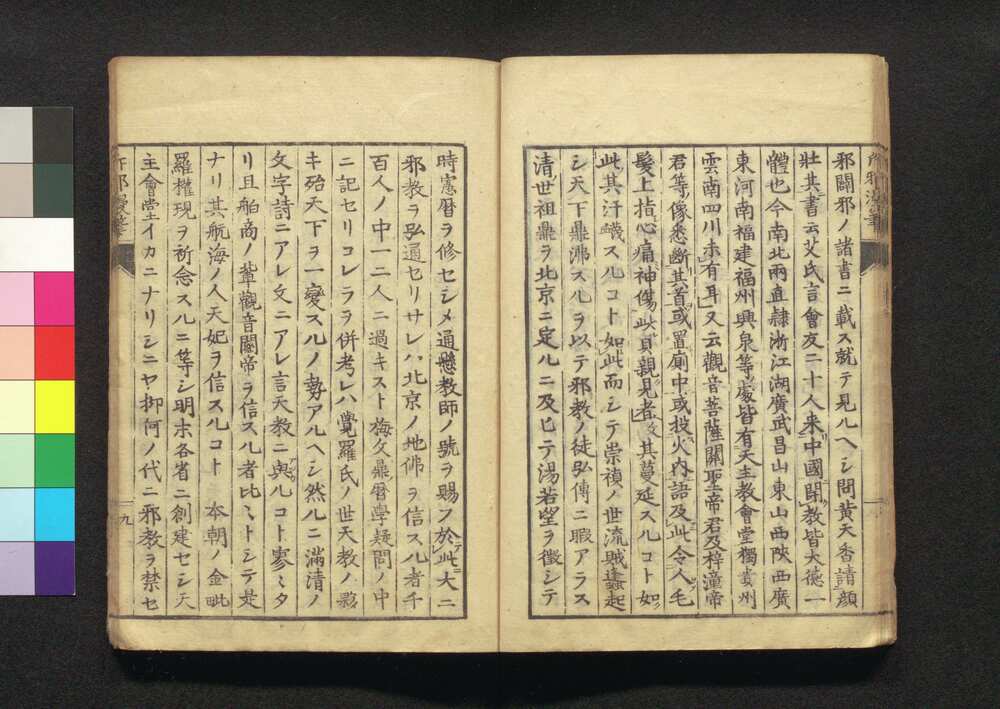 邪闢邪ノ諸書ニ載ス就テ見ルヘシ問黄天香請顔
壮其書云艾氏言會友二十人来中國開教皆大德一
體也今南北兩直隷浙江湖廣武昌山東山西陝西廣
東河南福建福州興泉等處皆有天主教會堂獨貴州
雲南四川未有耳又云觀音菩薩關聖帝君及梓潼帝
君等像悉斷其首或置廁中或投火内語及此令人毛
髮上指心痛神傷此貞親見者其蔓延スルコト如
此其汗衊スルコト如此而シテ崇禎ノ世流賊蠭起
シ天下鼎沸スルヲ以テ邪教ノ徒弘傳ニ暇アラス
清世祖鼎ヲ北京ニ定ルニ及ヒテ湯若望ヲ徴シテ
時憲暦ヲ修セシメ通懸教師ノ號ヲ賜フ於此大ニ
邪教ヲ弘通セリサレハ北京ノ地佛ヲ信スル者千
百人ノ中一二人ニ過キスト梅文鼎暦學疑問ノ中
ニ記セリコレラヲ併考レハ覺羅氏ノ世天教ノ夥
キ殆天下ヲ一變スルノ勢アルヘシ然ルニ滿清ノ
文字詩ニアレ文ニアレ言天教ニ與ルコト寥々タ
リ且舶商ノ輩觀音關帝ヲ信スル者比々トシテ是
ナリ其航海ノ人天妃ヲ信スルコト 本朝ノ金毗
羅權現ヲ祈念スルニ等シ明末各省ニ創建セシ天
主會堂イカニナリシニヤ抑何ノ代ニ邪教ヲ禁セ
九